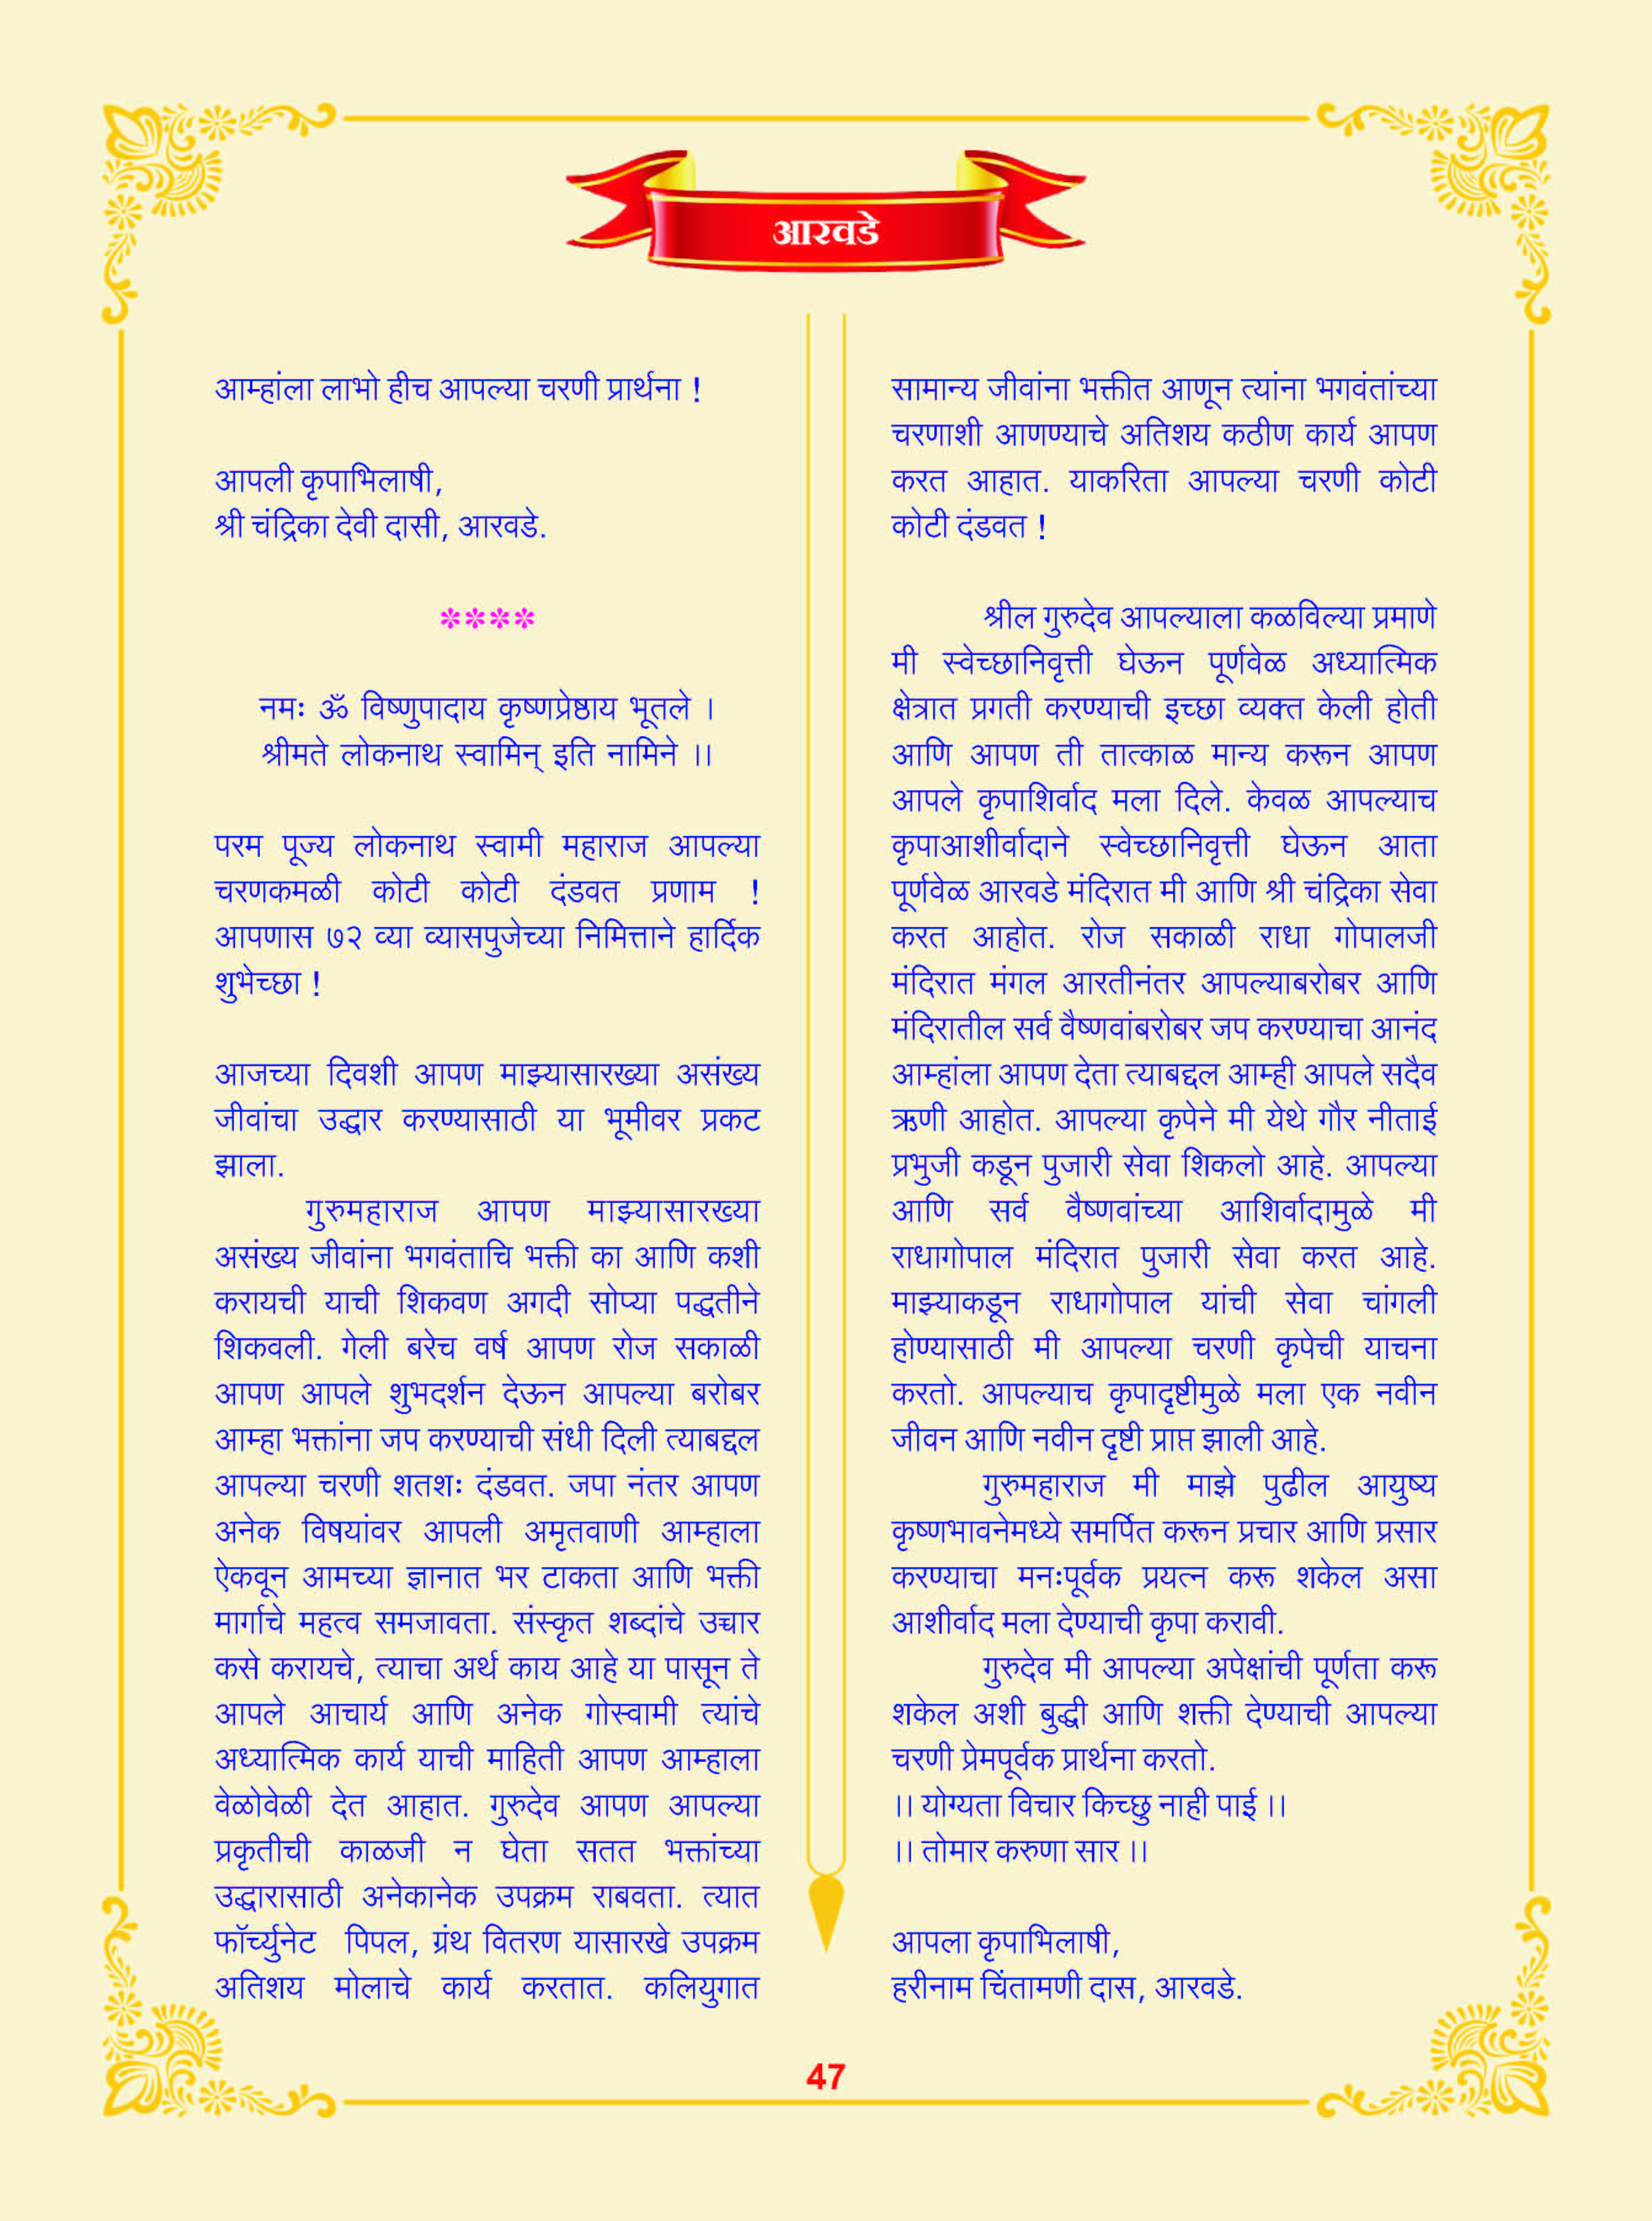 आरवडे
आम्हांला लाभो हीच आपल्या चरणी प्रार्थना !
आपली कृपाभिलाषी,
श्री चंद्रिका देवी दासी, आरवडे.
****
नमः ॐ विष्णुपादाय कृष्णप्रेष्ठाय भूतले ।
श्रीमते लोकनाथ स्वामिन् इति नामिने ।।
परम पूज्य लोकनाथ स्वामी महाराज आपल्या
चरणकमळी कोटी कोटी दंडवत प्रणाम !
आपणास ७२ व्या व्यासपुजेच्या निमित्ताने हार्दिक
शुभेच्छा !
आजच्या दिवशी आपण माझ्यासारख्या असंख्य
जीवांचा उद्धार करण्यासाठी या भूमीवर प्रकट
झाला.
गुरुमहाराज आपण माझ्यासारख्या
असंख्य जीवांना भगवंताचि भक्ती का आणि कशी
करायची याची शिकवण अगदी सोप्या पद्धतीने
शिकवली. गेली बरेच वर्ष आपण रोज सकाळी
आपण आपले शुभदर्शन देऊन आपल्या बरोबर
आम्हा भक्तांना जप करण्याची संधी दिली त्याबद्दल
आपल्या चरणी शतशः दंडवत. जपा नंतर आपण
अनेक विषयांवर आपली अमृतवाणी आम्हाला
ऐकवून आमच्या ज्ञानात भर टाकता आणि भक्ती
मार्गाचे महत्व समजावता. संस्कृत शब्दांचे उच्चार
कसे करायचे, त्याचा अर्थ काय आहे या पासून ते
आपले आचार्य आणि अनेक गोस्वामी त्यांचे
अध्यात्मिक कार्य याची माहिती आपण आम्हाला
वेळोवेळी देत आहात. गुरुदेव आपण आपल्या
प्रकृतीची काळजी न घेता सतत भक्तांच्या
उद्धारासाठी अनेकानेक उपक्रम राबवता. त्यात
फॉर्च्युनेट पिपल, ग्रंथ वितरण यासारखे उपक्रम
अतिशय मोलाचे कार्य करतात. कलियुगात
सामान्य जीवांना भक्तीत आणून त्यांना भगवंतांच्या
चरणाशी आणण्याचे अतिशय कठीण कार्य आपण
करत आहात. याकरिता आपल्या चरणी कोटी
कोटी दंडवत !
श्रील गुरुदेव आपल्याला कळविल्या प्रमाणे
मी स्वेच्छानिवृत्ती घेऊन पूर्णवेळ अध्यात्मिक
क्षेत्रात प्रगती करण्याची इच्छा व्यक्त केली होती
आणि आपण ती तात्काळ मान्य करून आपण
आपले कृपाशिर्वाद मला दिले. केवळ आपल्याच
कृपाआशीर्वादाने स्वेच्छानिवृत्ती घेऊन आता
पूर्णवेळ आरवडे मंदिरात मी आणि श्री चंद्रिका सेवा
करत आहोत. रोज सकाळी राधा गोपालजी
मंदिरात मंगल आरतीनंतर आपल्याबरोबर आणि
मंदिरातील सर्व वैष्णवांबरोबर जप करण्याचा आनंद
आम्हांला आपण देता त्याबद्दल आम्ही आपले सदैव
ऋणी आहोत. आपल्या कृपेने मी येथे गौर नीताई
प्रभुजी कडून पुजारी सेवा शिकलो आहे. आपल्या
आणि सर्व वैष्णवांच्या आशिर्वादामुळे मी
राधागोपाल मंदिरात पुजारी सेवा करत आहे.
माझ्याकडून राधागोपाल यांची सेवा चांगली
होण्यासाठी मी आपल्या चरणी कृपेची याचना
करतो. आपल्याच कृपादृष्टीमुळे मला एक नवीन
जीवन आणि नवीन दृष्टी प्राप्त झाली आहे.
गुरुमहाराज मी माझे पुढील आयुष्य
कृष्णभावनेमध्ये समर्पित करून प्रचार आणि प्रसार
करण्याचा मनःपूर्वक प्रयत्न करू शकेल असा
आशीर्वाद मला देण्याची कृपा करावी.
गुरुदेव मी आपल्या अपेक्षांची पूर्णता करू
शकेल अशी बुद्धी आणि शक्ती देण्याची आपल्या
चरणी प्रेमपूर्वक प्रार्थना करतो.
।। योग्यता विचार किच्छु नाही पाई ।।
।। तोमार करुणा सार ।।
आपला कृपाभिलाषी,
हरीनाम चिंतामणी दास, आरवडे.
47